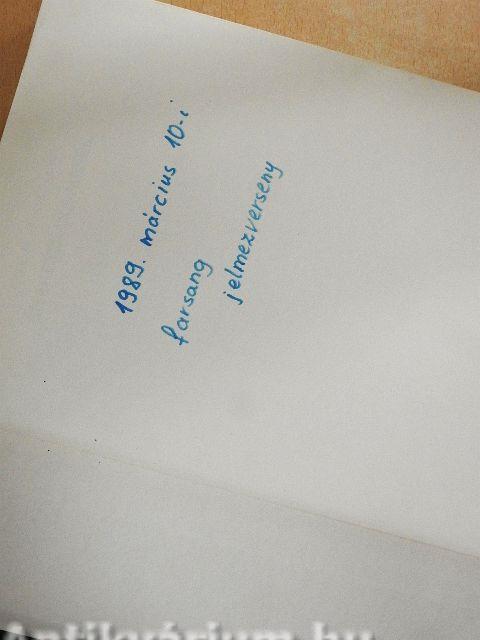 1989. március 10-i
farsang
jelmezverseny
Antikvárium.hu